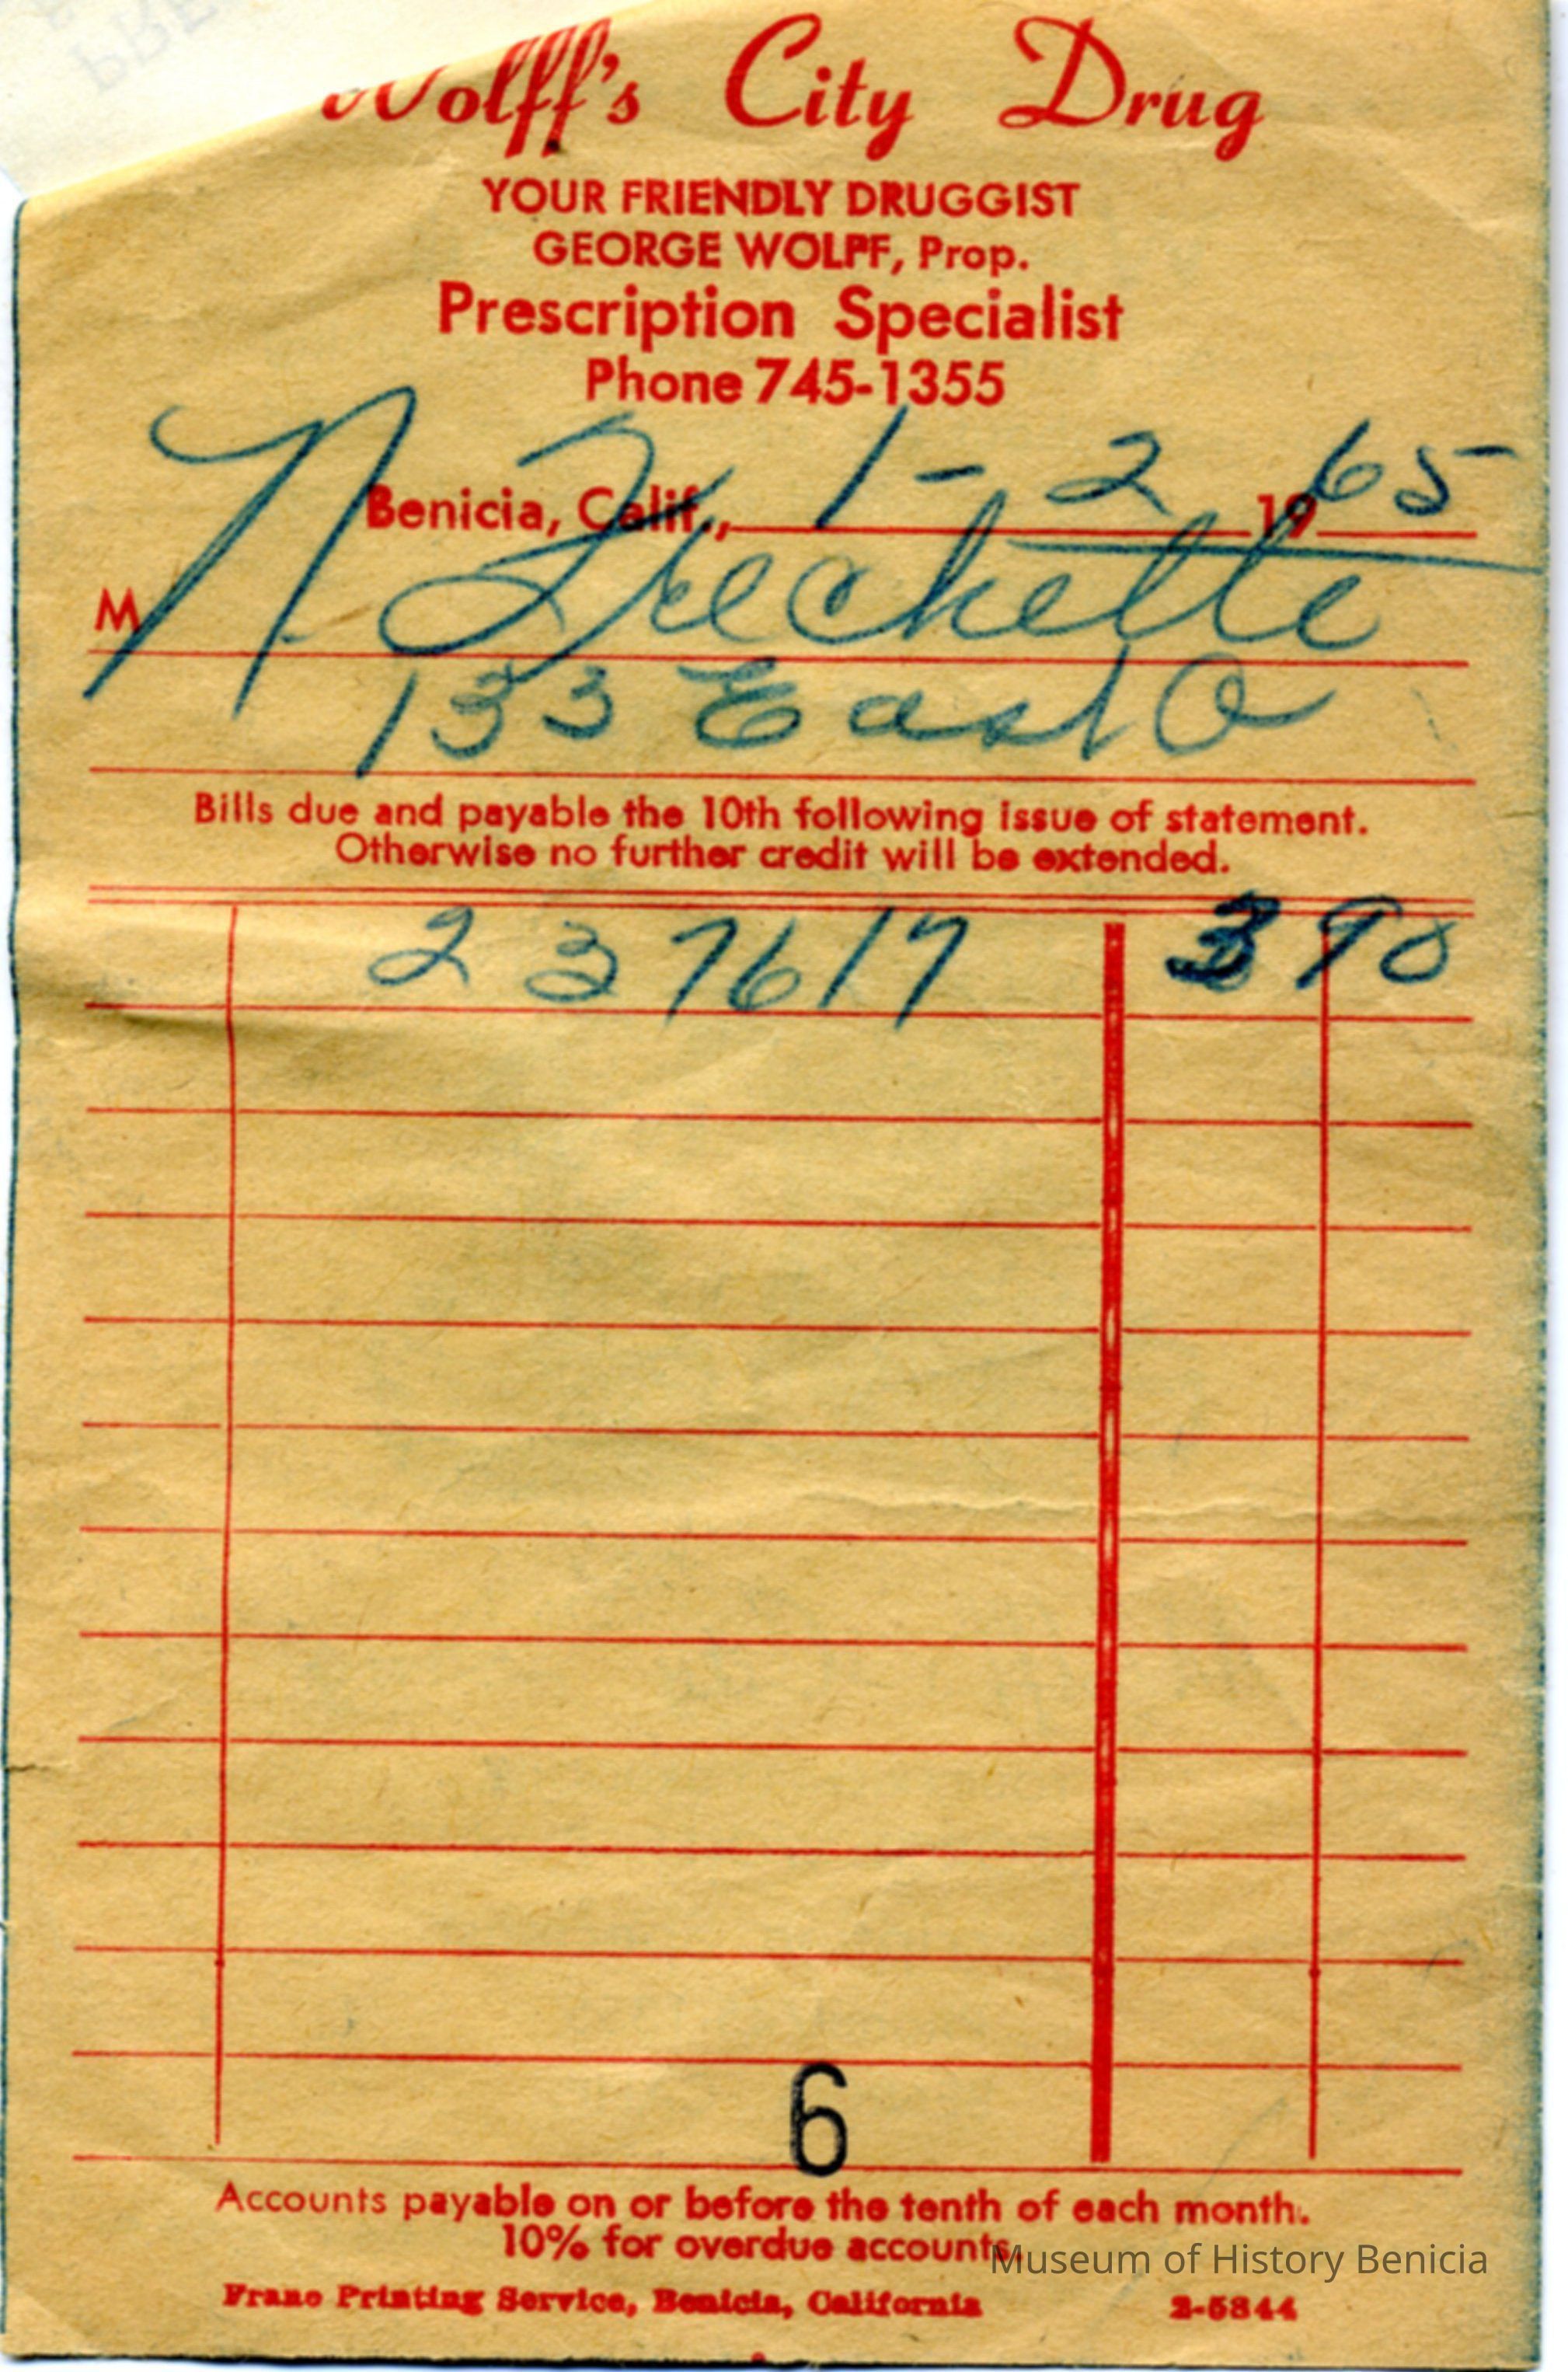 Wolff's City Drug
YOUR FRIENDLY DRUGGIST
GEORGE WOLFF, Prop.
Prescription Specialist
Phone 745-1355
Benicia, Calif., 1-2 1965
M N. Frechette
133 East O
Bills due and payable the 10th following issue of statement.
Otherwise no further credit will be extended.
237617 3 90
6
Accounts payable on or before the tenth of each month.
10% for overdue accounts.
Museum of History Benicia
Franc Printing Service, Benicia, California 2-5844